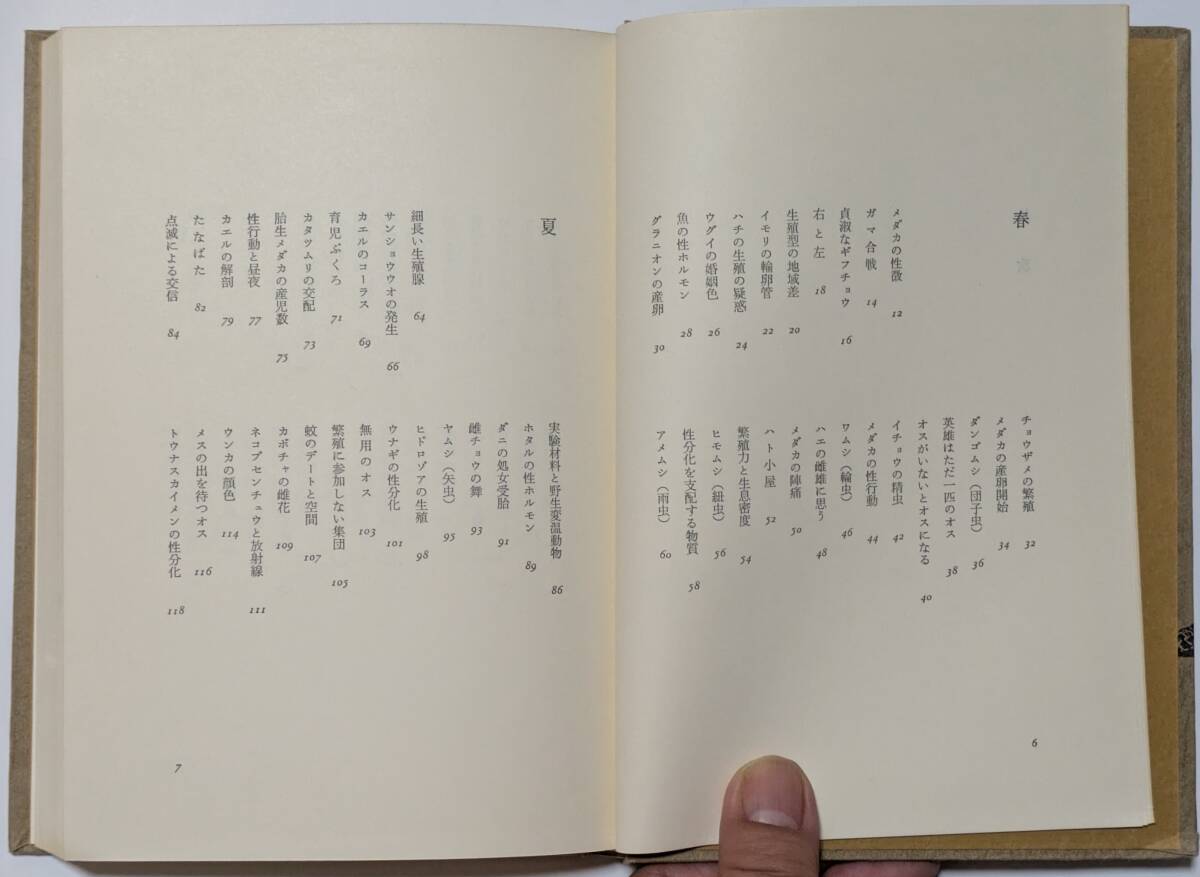 春
メダカの性徴 12
ガマ合戦 14
貞淑なギフチョウ 16
右と左 18
生殖型の地域差 20
イモリの輸卵管 22
ハチの生殖の疑惑 24
ウグイの婚姻色 26
魚の性ホルモン 28
グラニオンの産卵 30
チョウザメの繁殖 32
メダカの産卵開始 34
ダンゴムシ（団子虫） 36
英雄はただ一匹のオス 38
オスがいないとオスになる 40
イチョウの精虫 42
メダカの性行動 44
ワムシ（輪虫） 46
ハエの雌雄に思う 48
メダカの陣痛 50
ハト小屋 52
繁殖力と生息密度 54
ヒモムシ（紐虫） 56
性分化を支配する物質 58
アメムシ（雨虫） 60
6
夏
細長い生殖腺 64
サンショウウオの発生 66
カエルのコーラス 69
育児ぶくろ 71
カタツムリの交配 73
胎生メダカの産児数 75
性行動と昼夜 77
カエルの解剖 79
たなばた 82
点滅による交信 84
実験材料と野生変温動物 86
ホタルの性ホルモン 89
ダニの処女受胎 91
雌チョウの舞 93
ヤムシ（矢虫） 95
ヒドロゾアの生殖 98
ウナギの性分化 101
無用のオス 103
繁殖に参加しない集団 105
蚊のデートと空間 107
カボチャの雌花 109
ネコブセンチュウと放射線 111
ウンカの顔色 114
メスの出を待つオス 116
トウナスカイメンの性分化 118
7